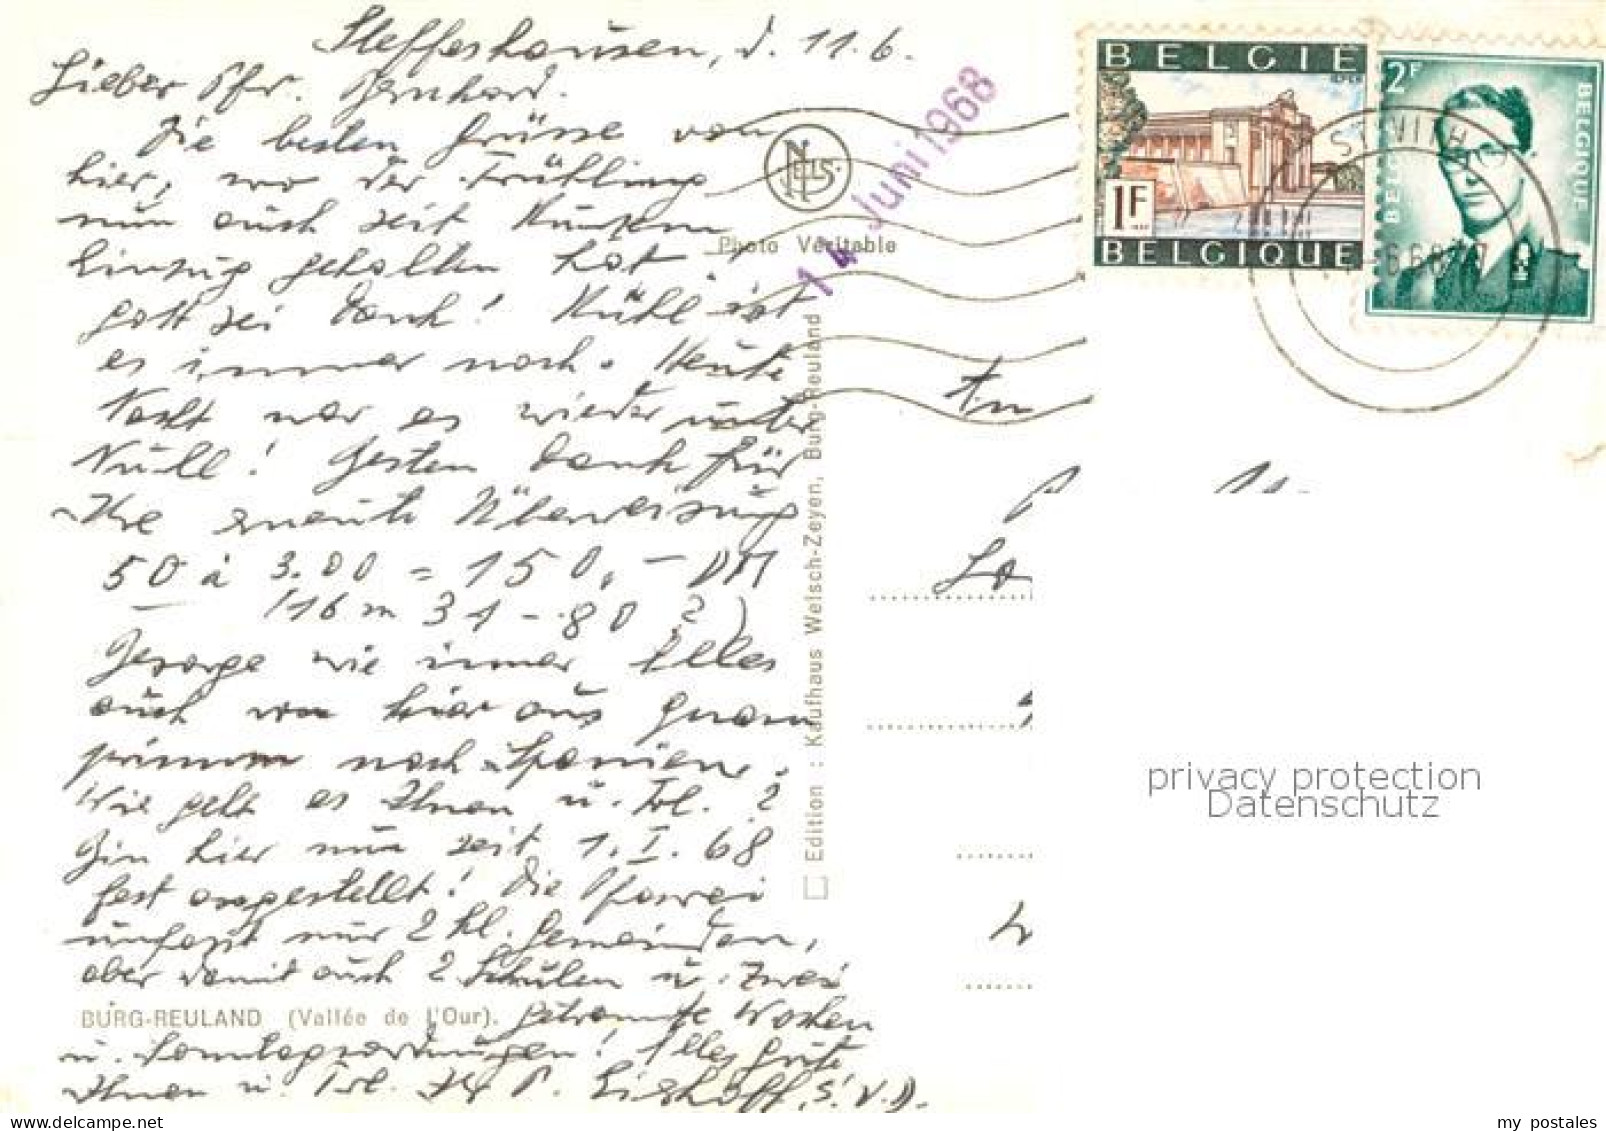 Steffeshausen, d. 11.6.
Lieber Pfr. Bernhard.
Die besten Grüsse von
hier, wo der Frühling
nun auch seit Kurzem
Einzug gehalten hat,
Gott sei Dank! Kühl ist
es immer noch. Heute
Nacht war es wieder unter
Null! Besten Dank für
Ihre erneute Überweisung
50 à 3.00 = 150,- DM
(116 m 31 - 80 ?)
Besorge wie immer Alles
auch von hier aus quam
primum nach Spanien.
Wie geht es Ihnen u. Frl. ?
Bin hier nun seit 1.I.68
fest angestellt! Die Pfarrei
umfasst nur 2 kl. Gemeinden,
aber damit auch 2 Schulen u. zwei
getrennte Wochen
u. Sonntagsordnungen! Alles Gute
Ihnen u. Frl. Ihr P. Lishoff, S.V.D.
BURG-REULAND (Vallée de l'Our).
NELS
Photo Véritable
14 Juni 1968
Edition : Kaufhaus Welsch-Zeyen, Burg-Reuland
BELGIE
1F
BELGIQUE
2F
BELGIQUE
BELGIË
ST. VITH
An
privacy protection
Datenschutz
my postales